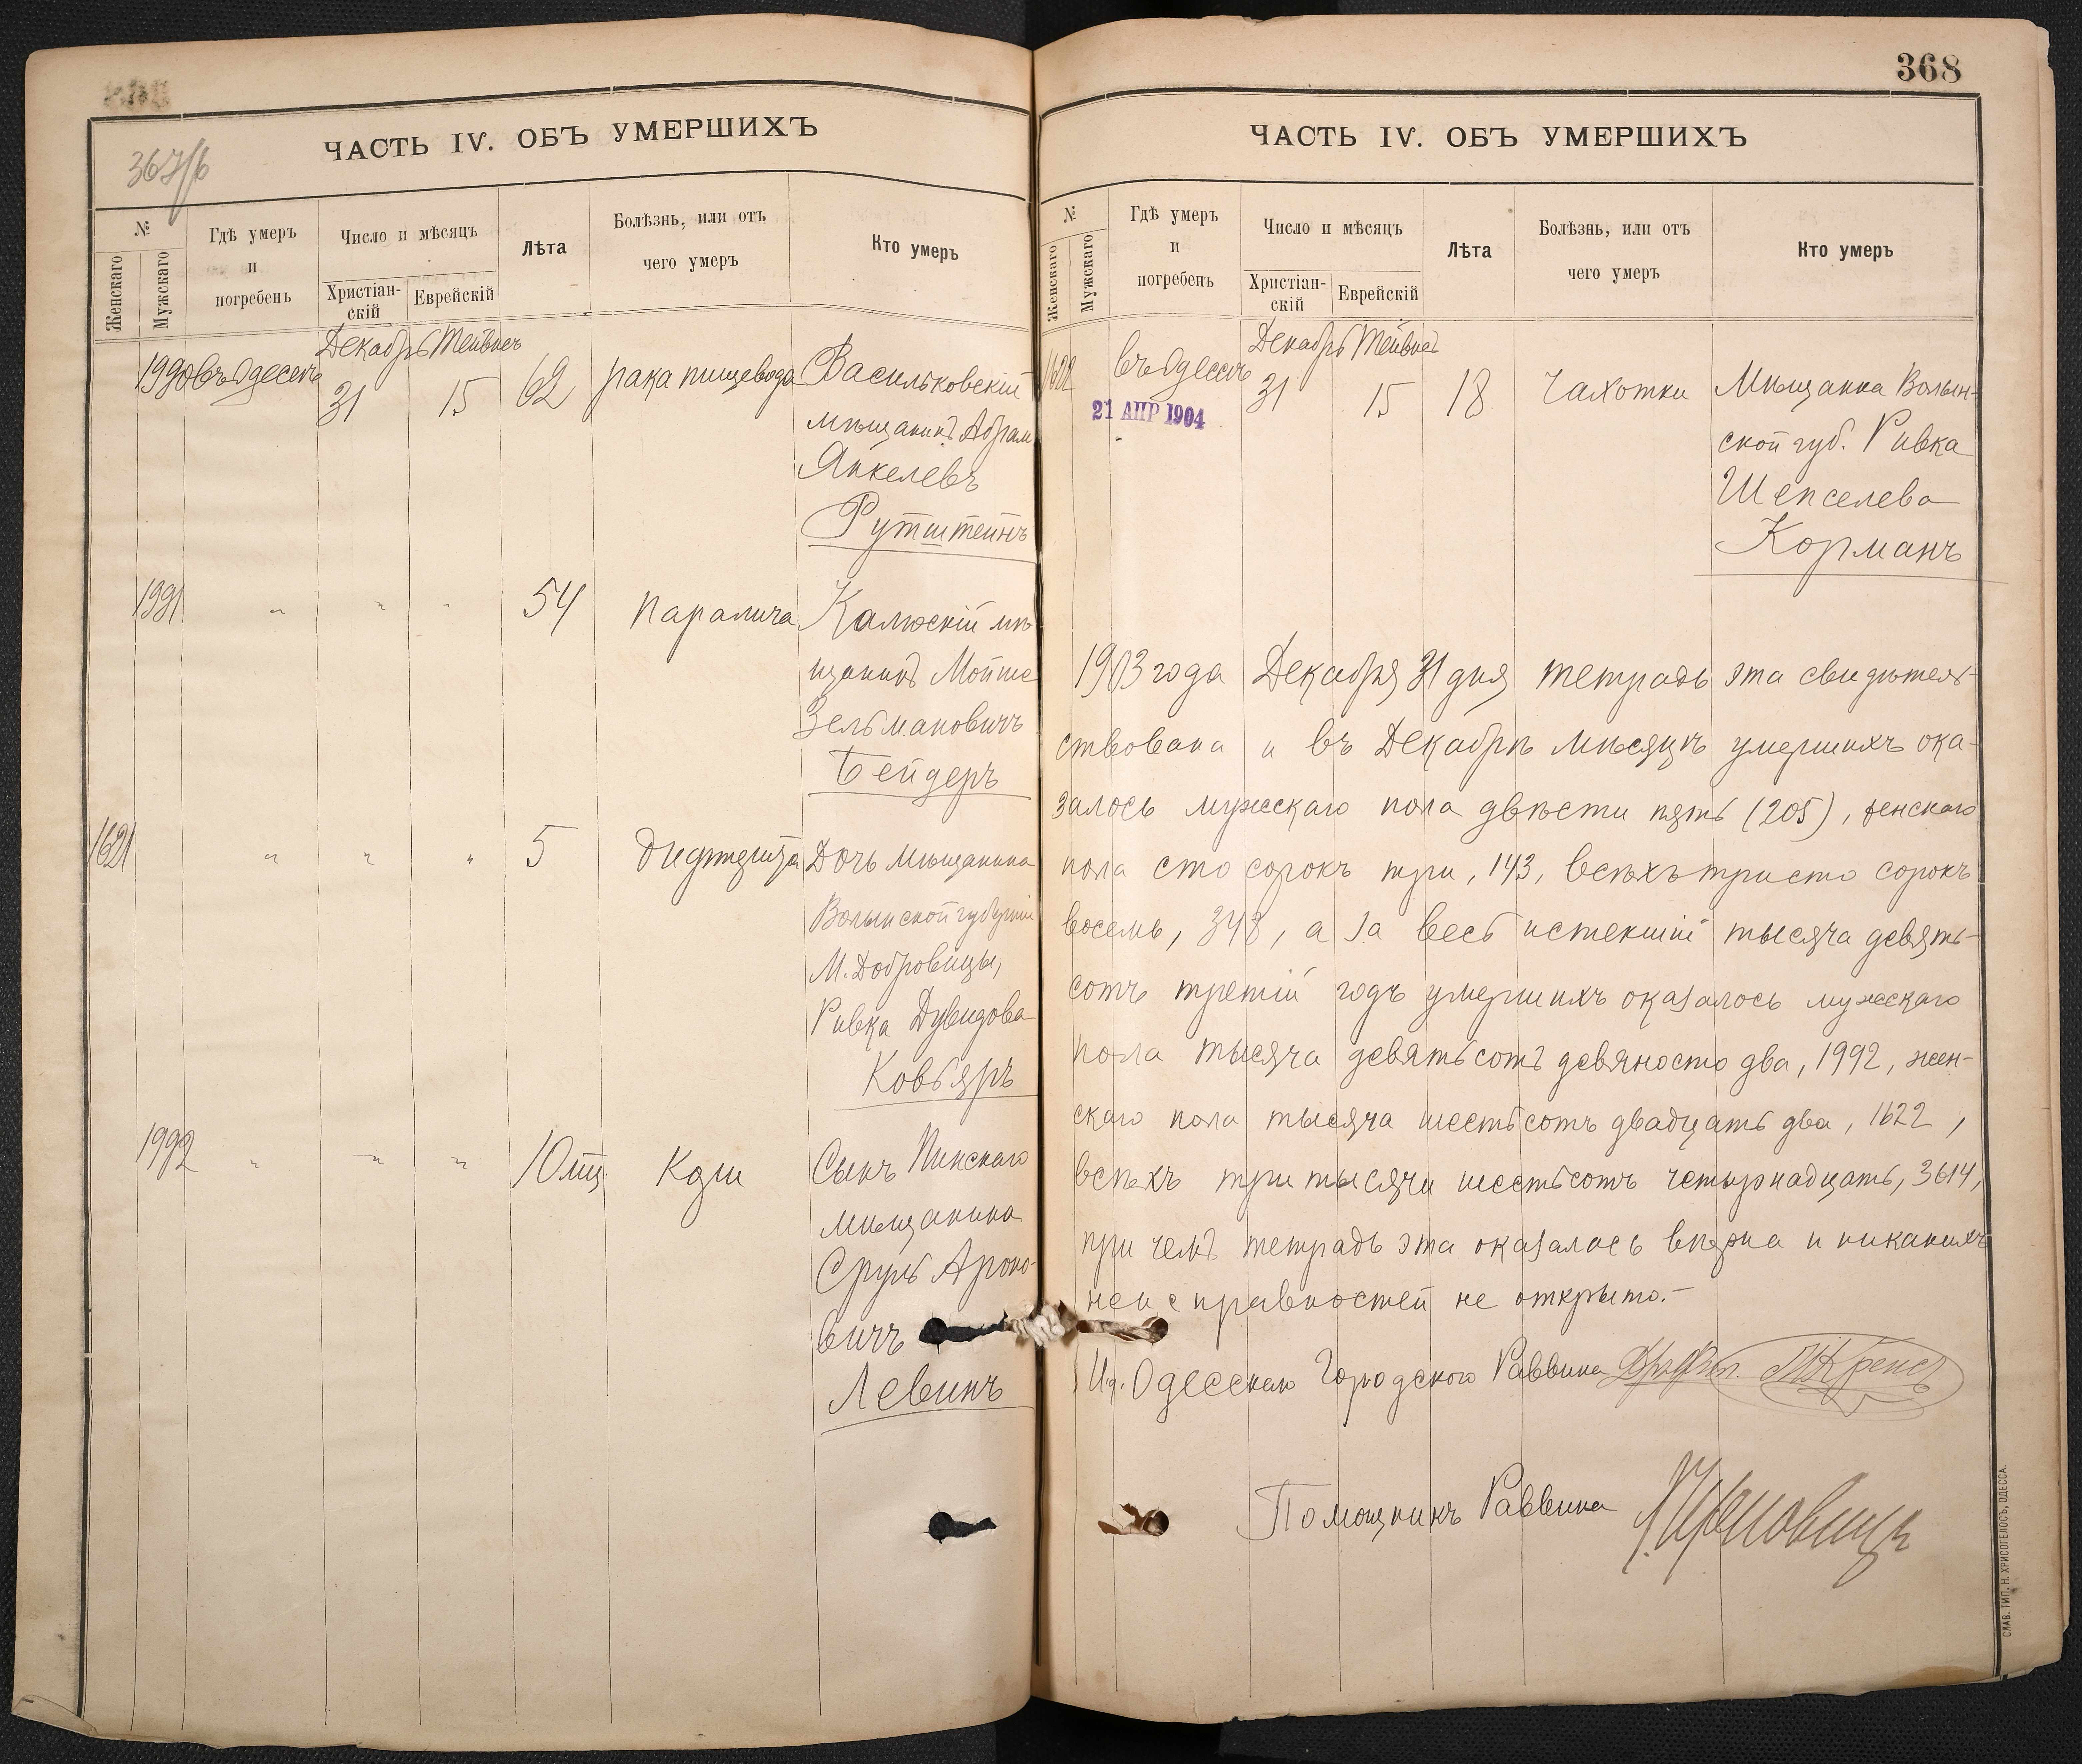 ЧАСТЬ IV. ОБЪ УМЕРШИХЪ
367/б
№
Женскаго
Мужскаго
Гдѣ умеръ
и
погребенъ
Число и мѣсяцъ
Христіан-
скій
Еврейскій
Лѣта
Болѣзнь, или отъ
чего умеръ
Кто умеръ
Декабрь Тейвесъ
1990 въ Одессѣ 31 15 62 рака пищевода Васильковскій
мѣщанинъ Абрам
Янкелевъ
Рутштейнъ
1991 " " " 54 паралича Калюскій мѣ
щанинъ Мойше
Зельмановичъ
Бейдеръ
1621 " " " 5 Дифтерита Дочь мѣщанина
Волынской губерніи
М. Домбровицы,
Ривка Дувидова
Ковбяръ
1992 " " " 10 мц. Кори Сынъ Пинскаго
мѣщанина
Сруль Ароно-
вичъ
Левинъ
368
ЧАСТЬ IV. ОБЪ УМЕРШИХЪ
№
Женскаго
Мужскаго
Гдѣ умеръ
и
погребенъ
Число и мѣсяцъ
Христіан-
скій
Еврейскій
Лѣта
Болѣзнь, или отъ
чего умеръ
Кто умеръ
Декабрь Тейвесъ
1622 въ Одессѣ 31 15 18 Чахотки Мѣщанка Волын-
21 АПР 1904
ской губ. Ривка
Шепселева
Корманъ
1903 года Декабря 31 дня тетрадь эта свидѣтель-
ствована и въ Декабрѣ мѣсяцѣ умершихъ ока-
залось мужскаго пола двѣсти пять (205), женскаго
пола сто сорокъ три, 143, всѣхъ триста сорокъ
восемь, 348, а за весь истекшій тысяча девять-
сотъ третій годъ умершихъ оказалось мужескаго
пола тысяча девятьсотъ девяносто два, 1992, жен-
скаго пола тысяча шестьсотъ двадцать два, 1622,
всѣхъ три тысячи шестьсотъ четырнадцать, 3614,
при чемъ тетрадь эта оказалась вѣрна и никакихъ
неисправностей не открыто.-
И.д. Одесскаго Городского Раввина
Помощникъ Раввина
СЛАВ. ТИП. Н. ХРИСОГЕЛОСЪ, ОДЕССА.